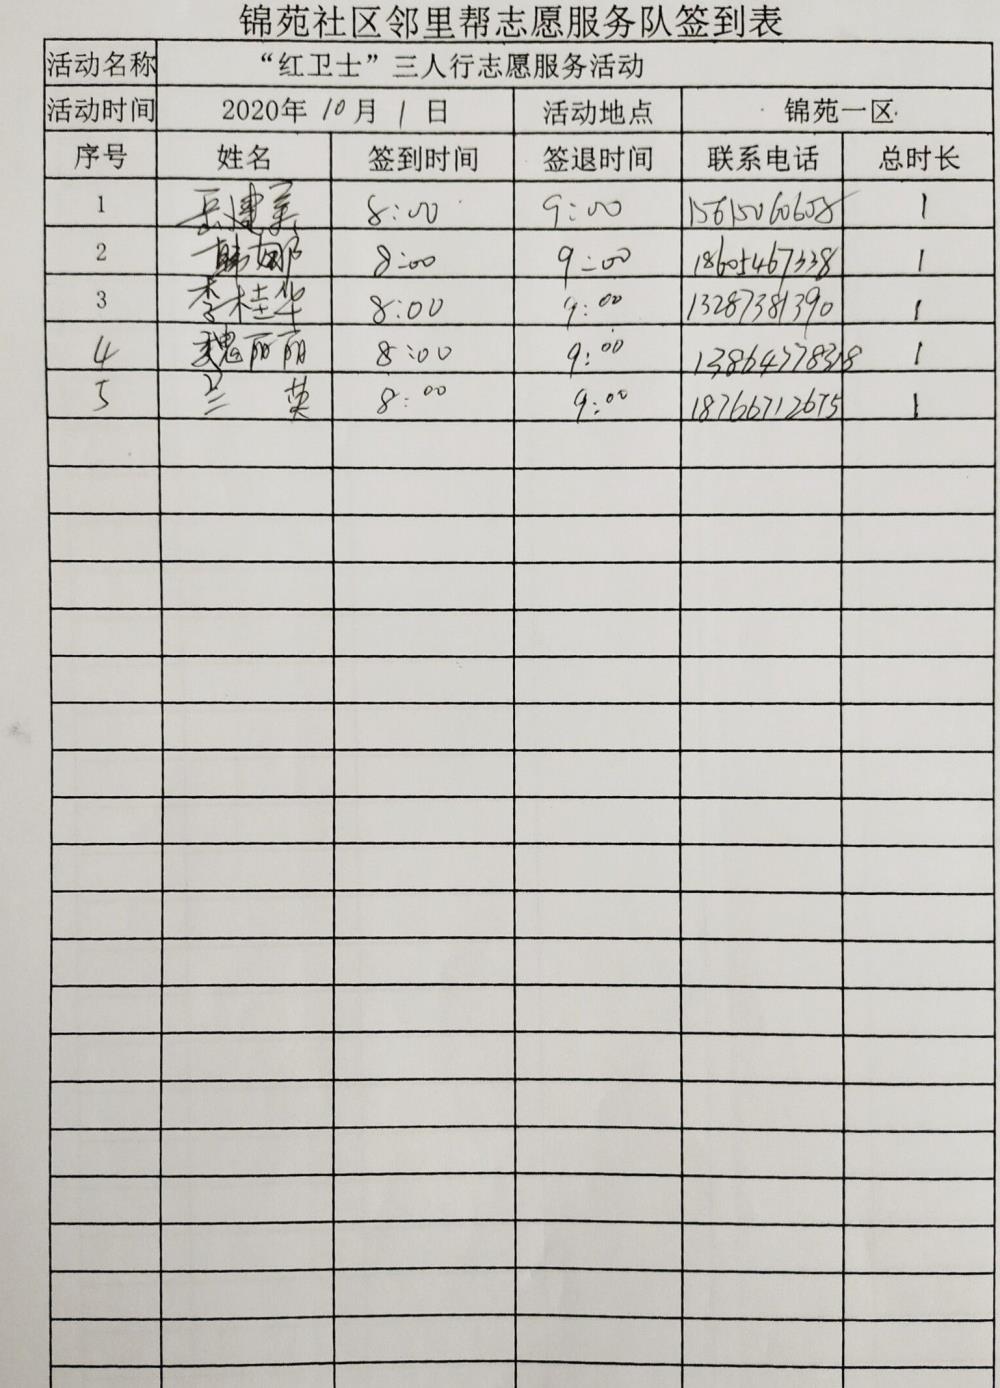 锦苑社区邻里帮志愿服务队签到表
活动名称 “红卫士”三人行志愿服务活动
活动时间 2020年 10 月 1 日 活动地点 锦苑一区
序号 姓名 签到时间 签退时间 联系电话 总时长
1 岳建美 8:00 9:00 15615060608 1
2 韩娜 8:00 9:00 18605467338 1
3 李桂华 8:00 9:00 13287381390 1
4 魏丽丽 8:00 9:00 13864778318 1
5 兰英 8:00 9:00 18766712675 1